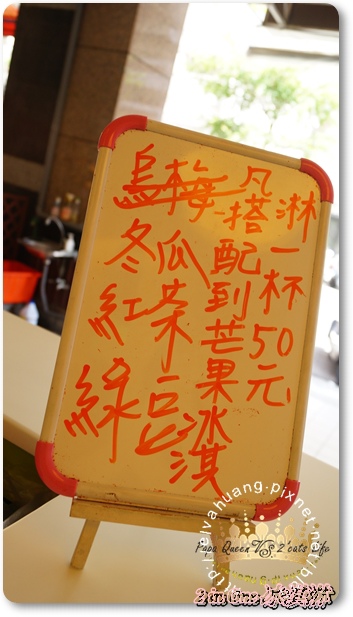 烏梅
冬瓜
紅茶
綠豆
凡搭配到芒果冰淇
淋一杯50元
http://elvahuang.pixnet.net/blog
Papa Queen VS 2'cats Life